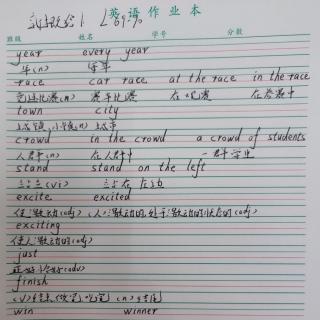 英语作业本
班级 姓名 学号 分数
year every year
年(n) 每年
race car race at the race in the race
赛车比赛 在比赛 在参赛中
town city
城镇,小镇(n) 城市
crowd in the crowd a crowd of students
人群(n) 在人群中 一群学生
stand stand on the left
站立(vi) 站在左边
excite excited
使激动(adj) (人)激动的,处于激动的状态的(adj)
exciting
使人激动的(adj)
just
正好,恰好(adv)
finish
(v)结束,做完,吃完 (n)结尾
win winner